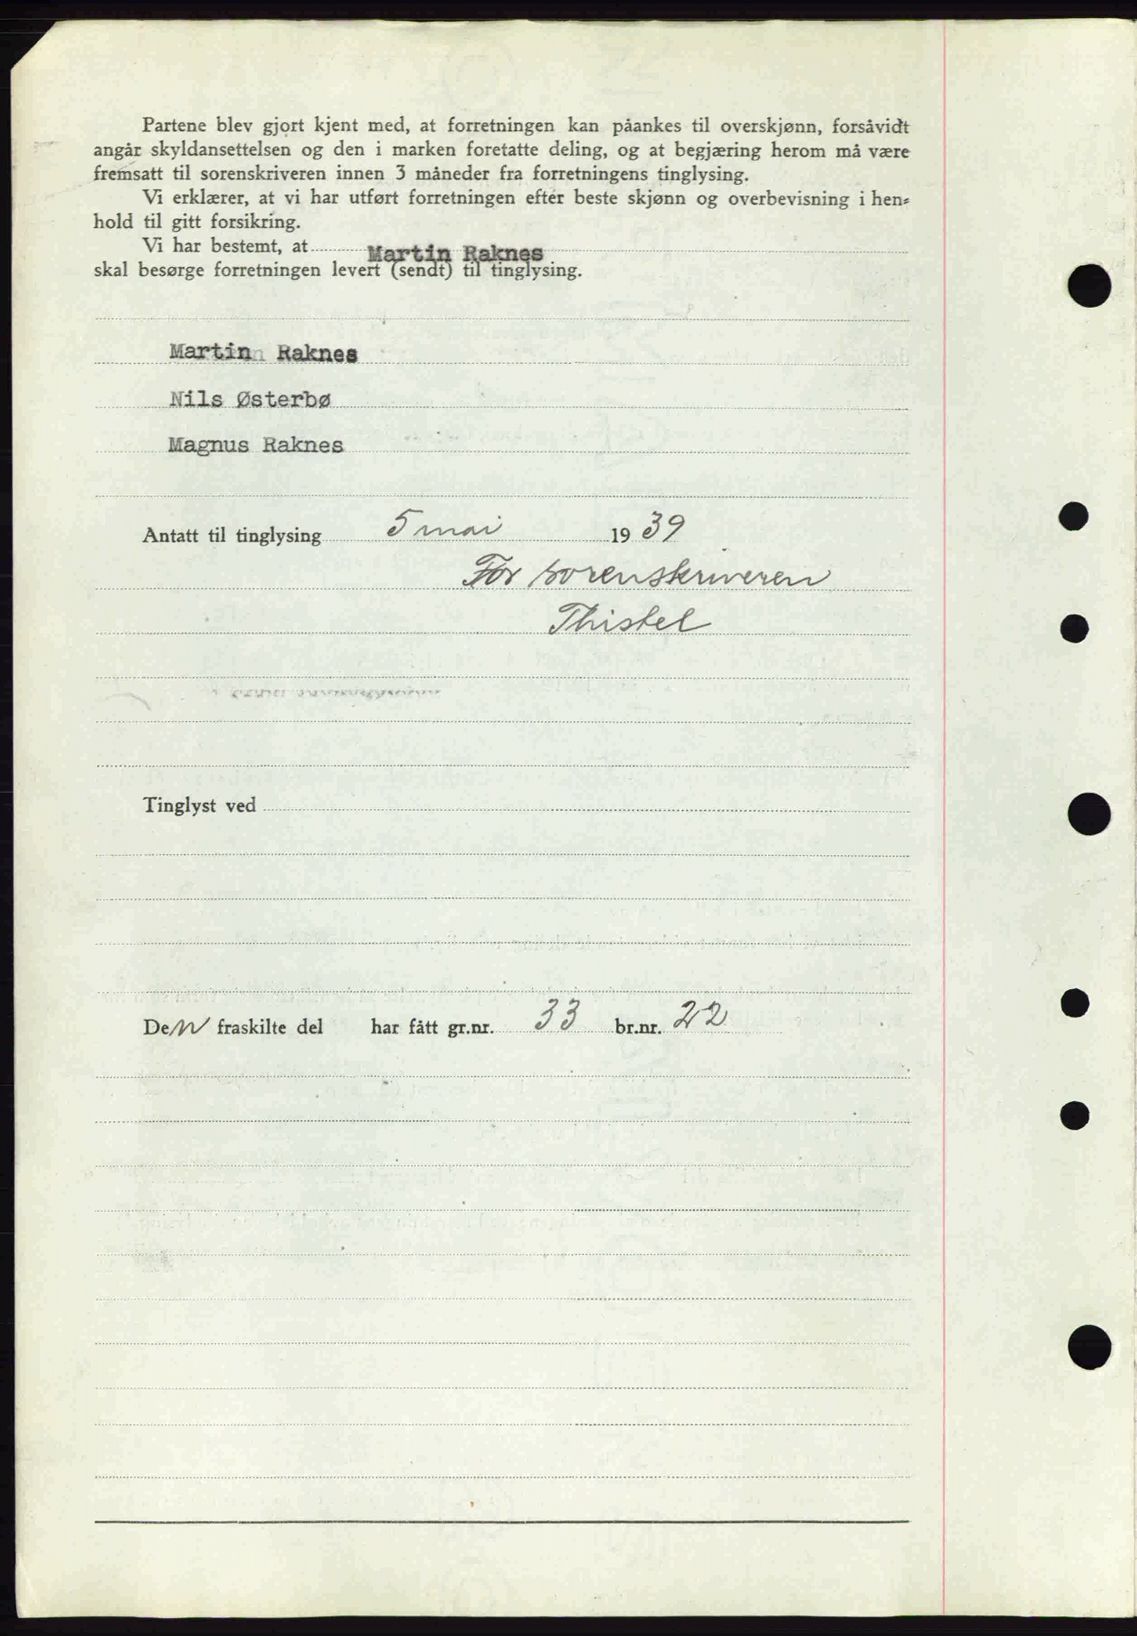 Partene blev gjort kjent med, at forretningen kan påankes til overskjønn, forsåvidt
angår skyldansettelsen og den i marken foretatte deling, og at begjæring herom må være
fremsatt til sorenskriveren innen 3 måneder fra forretningens tinglysing.
Vi erklærer, at vi har utført forretningen efter beste skjønn og overbevisning i hen-
hold til gitt forsikring.
Vi har bestemt, at Martin Raknes
skal besørge forretningen levert (sendt) til tinglysing.
Martin Raknes
Nils Østerbø
Magnus Raknes
Antatt til tinglysing 5 mai 1939
For sorenskriveren
Thistel
Tinglyst ved
Den fraskilte del har fått gr.nr. 33 br.nr. 22